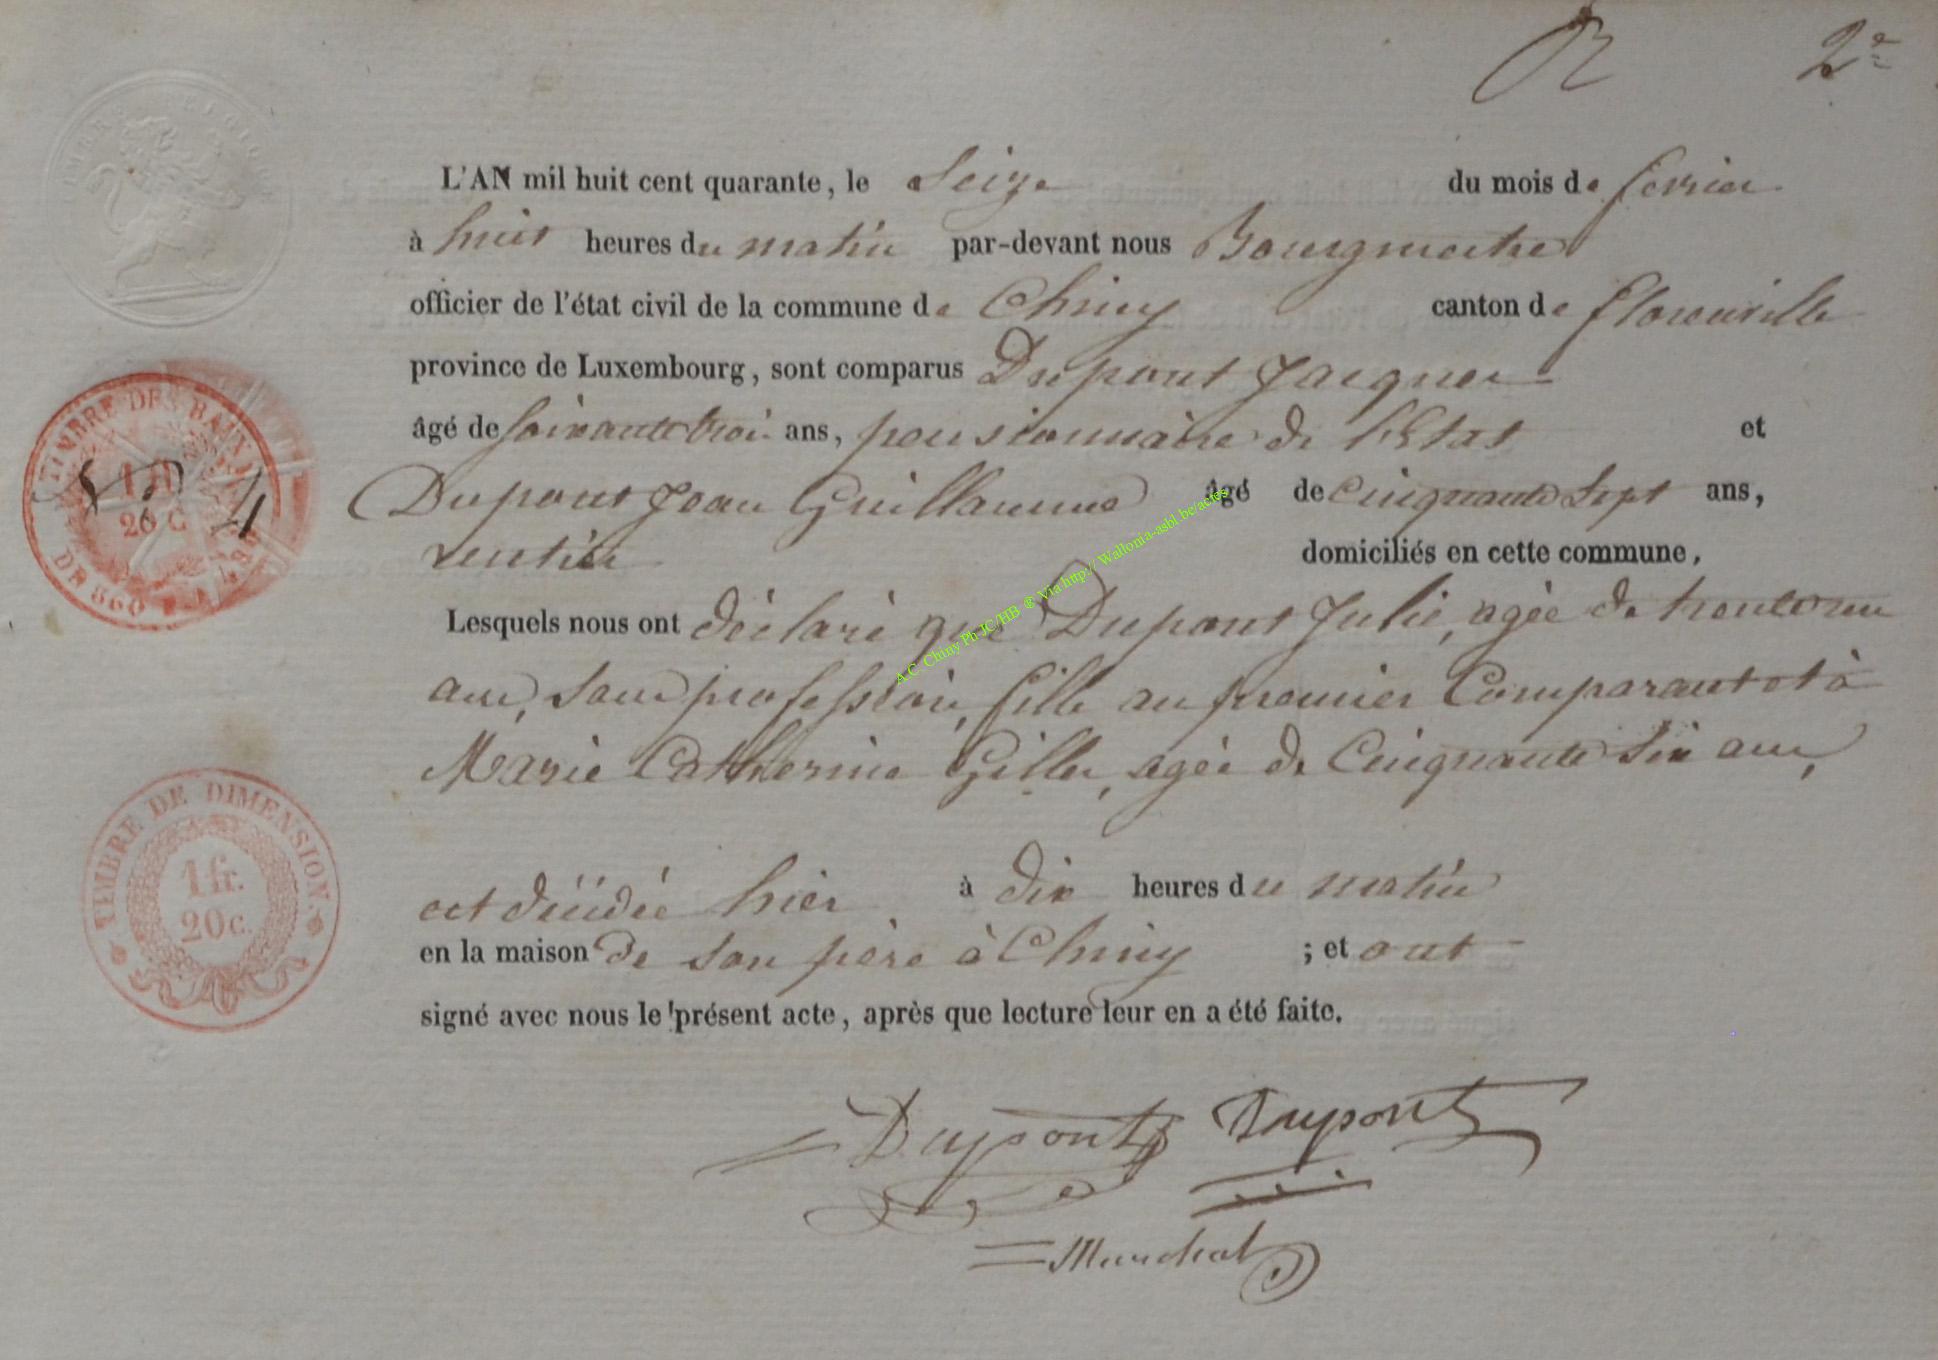 2e
L'AN mil huit cent quarante, le Seize du mois de fevrier
à huit heures du matin par-devant nous Bourgmestre
officier de l'état civil de la commune de Chiny canton de florenville
province de Luxembourg, sont comparus Dupont Jacques
âgé de soixante trois ans, pensionnaire de l'Etat et
Dupont Jean Guillaume âgé de Cinquante Sept ans,
rentier domiciliés en cette commune,
Lesquels nous ont déclaré que Dupont Julie, agée de trente un
ans, sans profession, fille au premier Comparant et à
Marie Catherine Gilles, agée de Cinquante six ans,
est décédée hier à dix heures du matin
en la maison de son père à Chiny ; et ont
signé avec nous le présent acte, après que lecture leur en a été faite.
Dupont Dupont
Marchal
TIMBRE DE DIMENSION
1 fr.
20 c.
A.C. Chiny Ph JC/HB ® Via http:// Wallonia-asbl be/actes